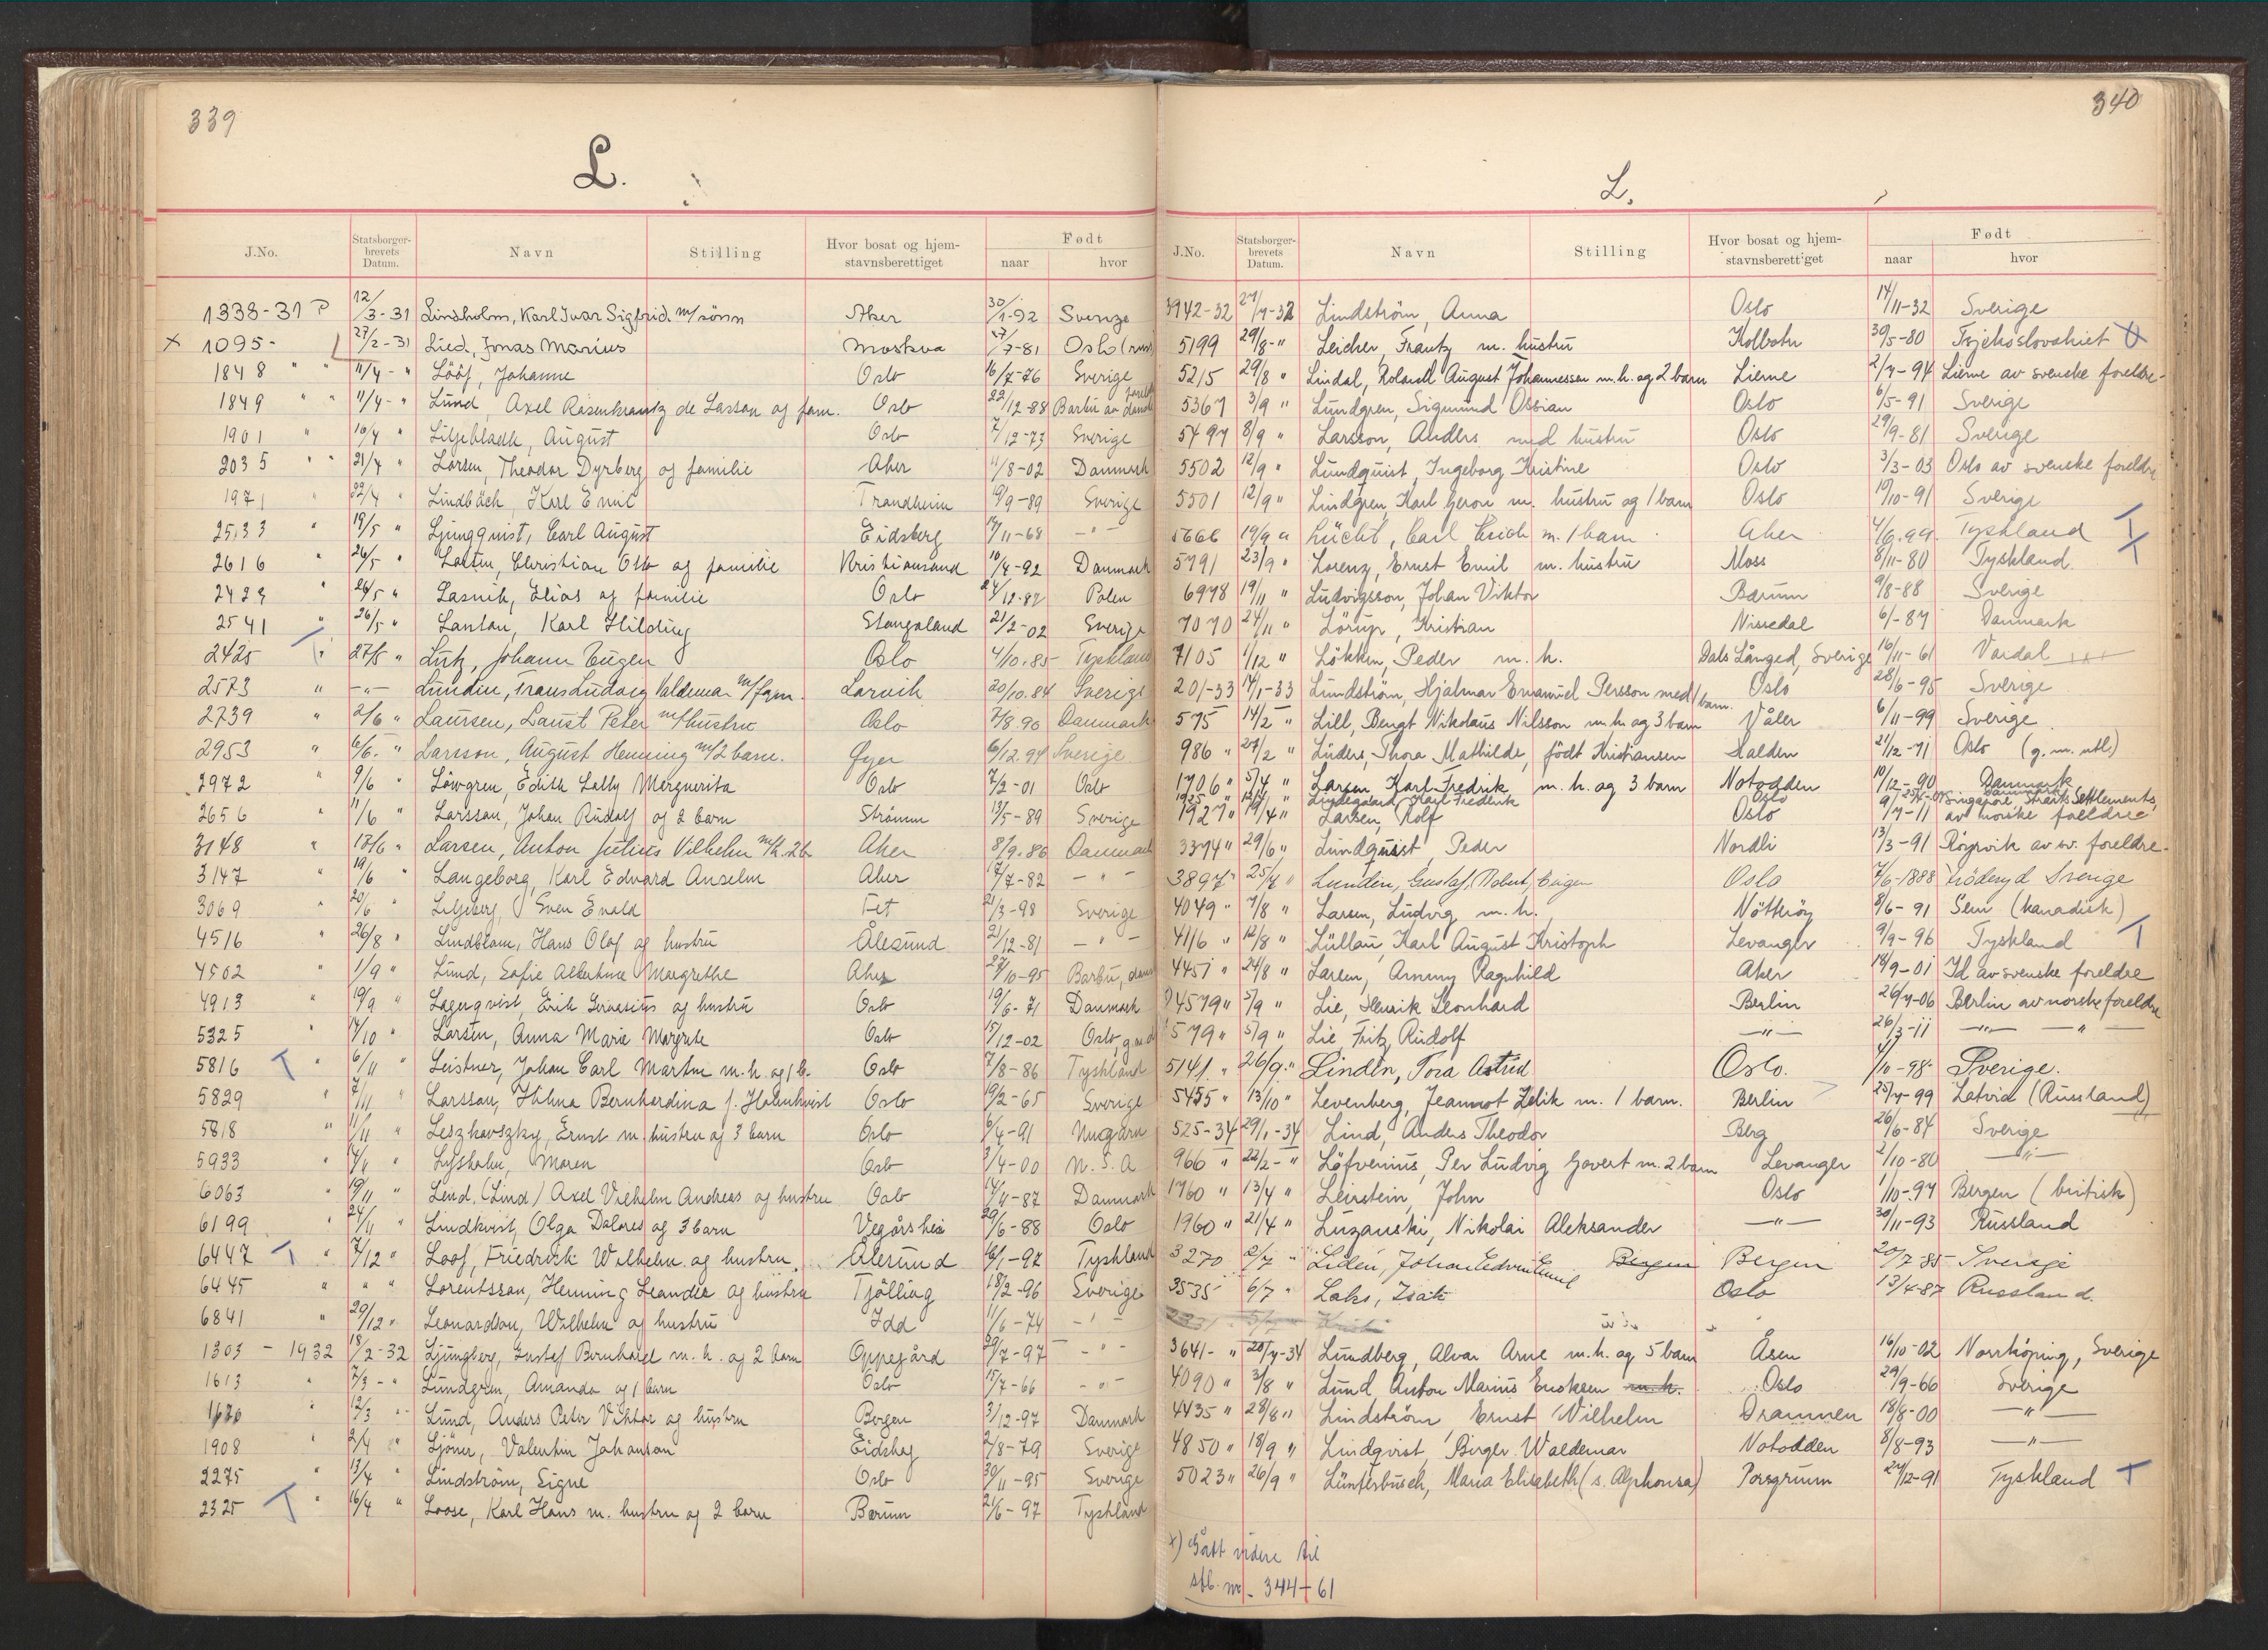 339
L.
J.No. Statsborger-brevets Datum. Navn Stilling Hvor bosat og hjem-stavnsberettiget Født naar hvor
1338-31 P 12/3-31 Lindholm, Karl Ivar Sigfrid m/sönn Aker 30/1-92 Sverige
x 1095- 27/2-31 Lied, Jonas Marius Moskva 17/7-81 Oslo
1848 " " 11/4 - " Lööf, Johanne Oslo 16/7-76 Sverige
1849 " " 11/4 - " Lund, Axel Rosenkrantz de Lasson og fam. Oslo 22/12-88 Barbu av danske foreldre
1901 " 16/4 " Liljebladh, August Oslo 7/12-73 Sverige
2035 " " 21/4 " Larsen, Theodor Dyrberg og familie Aker 11/8-02 Danmark
1971 " 22/4 " Lindbäck, Karl Emil Trondheim 19/9-89 Sverige
2533 " 19/5 " Ljungquist, Carl August Eidsberg 14/11-68 - " -
2616 " 26/5 " Christian Otto og familie Kristiansand 10/4-92 Danmark
2429 " 26/5 " Lasnik, Elias og familie Oslo 24/12-87 Polen
2541 " 26/5 " Lantan, Karl Hilding Stangaland 21/2-02 Sverige
2425 T " 27/5 " Lutz, Johann Eugen Oslo 4/10.85 Tyskland
2573 " - " - Lundin, Frans Ludvig Valdemar m/fam. Larvik 20/10.84 Sverige
2739 " 2/6 " Laursen, Laust Peter m/hustru Oslo 7/8 90 Danmark
2953 " 6/6. " Larsson, August Henning m/2 barn. Øyer 6/12.94 Sverige
2972 " 9/6 " Löwgren, Edith Lally Marguerita Oslo 7/2-01 Oslo
2656 " 11/6 " Larsson, Johan Rudolf og 2 barn Strömm 13/5-89 Sverige
3148 " 13/6 " Larsen, Anton Julius Vilhelm m/h. 2 b Aker 8/9.86 Danmark
3147 " 19/6 " Langeborg, Karl Edvard Anselm Aker 17/7-82 - " -
3069 " 20/6 " Liljeberg, Sven Evald Fet 21/3-98 Sverige
4516 " 26/8 " Lindblom, Hans Olof og hustru Ålesund 21/12-81 - " -
4502 " 1/9 " Lund, Sofie Albertine Margrethe Aker 27/10-95 Barbu, dansk
4913 " 19/9 " Lagerqvist, Erik Gervasius og hustru Oslo 19/6-71 Danmark
5325 " 14/10 " Larsen, Anna Marie Margrete Oslo 15/12-02 Oslo,
5816 T " 6/11 " Leistner, Johan Carl Martin m.h. og 1 b. Oslo 7/8-86 Tyskland
5829 " 7/11 " Larsson, Hilma Bernhardina f. Holmkvist Oslo 19/2-65 Sverige
5818 " 11/11 " Leszkovszky, Ernst m. hustru og 3 barn Oslo 6/4-91 Ungarn
5933 " 14/11 " Lysholm, Maren Oslo 3/4-00 U.S.A
6063 " 19/11 " Leind. (Lind) Axel Vilhelm Andreas og hustru Oslo 14/11-87 Danmark
6199 " 24/11 " Lindkvist, Olga Dolores og 3 barn Vegårshei 29/6-88 Oslo
6447 T " 7/12 " Loof, Friedrich Wilhelm og hustru. Ålesund 16/1-92 Tyskland
6445 " " " Lorentsson, Henning Leander og hustru Tjölling 18/2-96 Sverige
6841 " 29/12 " Leonardson, Wilhelm og hustru Idd 11/6-74 - " -
1303 - 1932 18/2-32 Ljungberg, Gustaf Bernhard m.h. og 2 barn Oppegård 29/7-97 - " -
1613 " 7/3 - " Lundgren, Amanda og 1 barn Oslo 15/7-66 - " -
1676 " 12/3 " Lund, Anders Peter Viktor og hustru Bergen 3/12-97 Danmark
1908 " 2/4 " Ljöner, Valentin Johanson Eidskog 2/8-79 Sverige
2275 " 13/4 " Lindström, Signe Oslo 30/11-95 Sverige
2325 T " 16/4 " Loose, Karl Hans m. hustru og 2 barn Bærum 21/6-97 Tyskland
340
L.
J.No. Statsborger-brevets Datum. Navn Stilling Hvor bosat og hjem-stavnsberettiget Født naar hvor
3942-32 27/7-32 Lindström, Anna Oslo 14/11-32 Sverige
5199 29/8-" Leicher, Frantz m. hustru Kolbotn 30/5-80 Tsjekoslovakiet
5215 29/8 " Lindal, Roland August Johannessen m.h. og 2 barn Lierne 2/7-94 Lierne av svenske foreldre-
5367 3/9 " Lundgren, Sigmund Ossian Oslo 6/5-91 Sverige
5497 8/9 " Larsson, Anders med hustru Oslo 29/9-81 Sverige
5502 12/9 " Lundquist, Ingeborg Kristine Oslo 3/3-03 Oslo av svenske foreldre
5501 12/9 " Lindgren, Karl Geron m. hustru og 1 barn Oslo 19/10-91 Sverige
5666 19/9 " Lücht, Carl Erich m. 1 barn Aker 4/6.99. Tyskland T
5791 23/9 " Lorenz, Ernst Emil m. hustru Moss 8/11-80 Tyskland. T
6978 19/11 " Ludvigsson, Johan Viktor Bærum 9/8-88 Sverige
7070 24/11 " Lörup, Kristian Nissedal 6/-87 Danmark
7105 1/12 " Lökken, Peder m. h. Dals Långed, Sverige 16/11-61 Vardal
201-33 14/1-33 Lundström, Hjalmar Emanuel Persson med 1 barn. Oslo 28/6-95 Sverige
575 14/2 " Lill, Bengt Nikolaus Nilsson m.h. og 3 barn Våler 6/11-99 Sverige
986 " 27/2 " Lüders, Thora Mathilde, född Kristiansen Halden 21/12-71 Oslo (g.m. utl.)
1706 " 5/4 " Larsen Karl Fredrik, m. h. og 3 barn Notodden 10/12-90 Danmark
1925 " 12/4 " Lindegaard, Karl Frederik Oslo Danmark
1927 " 19/4 " Larsen, Rolf Oslo 9/7-11 Singapore, Straits Settlements, av norske foreldre
3374 " 29/6 " Lundquist, Peder Nordli 13/3-91 Röyrvik av sv. foreldre.
3897 " 25/7 " Lundin, Gustaf, Robert, Eugen Oslo 7/6-1888 Sverige
4049 " 7/8 " Larsen, Ludvig m. h. Nötteröy 8/6-91 Sem (kanadisk)
4116 " 12/8 " Lüllau, Karl August Kristoph Levanger 9/9-96 Tyskland T
4451 " 24/8 " Larsen, Ammy Ragnhild Aker 18/9-01 Id av svenske foreldre
4579 " 5/9 " Lie, Henrik Leonhard Berlin 26/7-06 Berlin av norske foreldre
4579 " 5/9 " Lie, Fritz Rudolf - " - 26/3-11 - " - - " -
5141. " 26/9. " Linden, Tora Astrid Oslo. 4/10-98- Sverige.
5455 " 13/10 " Levenberg, Jeannot Zelik m. 1 barn. Berlin 25/7-99 Latvia (Russland)
525-34 29/1-34 Lind, Anders Theodor Berg 26/6-84 Sverige
966 " 22/2-" Löfvenius, Per Ludvig Govert m. 2 barn Levanger 2/10-80 - " -
1760 " 13/4 " Leirstein, John Oslo 1/10-97 Bergen (britisk)
1960 " 21/4 " Luzanski, Nikolai Aleksander - " - 30/11-93 Russland
3270 2/7 " Lidén, Johan Edvin Emil Bergen Bergen 20/7 85 Sverige
3535 6/7 " Laks, Isak Oslo 13/4-87 Russland.
3641- " 20/7-34 Lundberg, Alvar Arne m.h. og 5 barn Åsen 16/10-02 Norrköping, Sverige
4090 " 3/8 " Lund, Anton Marius Enoksen m.h. Oslo 29/9-66 Sverige
4435 " 28/8 " Lindström, Ernst Wilhelm Drammen 18/8-00 - " -
4850 " 18/9 " Lindqvist, Birger Waldemar Notodden 8/8-93 - " -
5023 " 26/9 " Lünterbusch, Maria Elisabeth (s. Alphonsa) Porsgrunn 24/12-91 Tyskland T
x) Gått videre til
stb. nr. 344-61